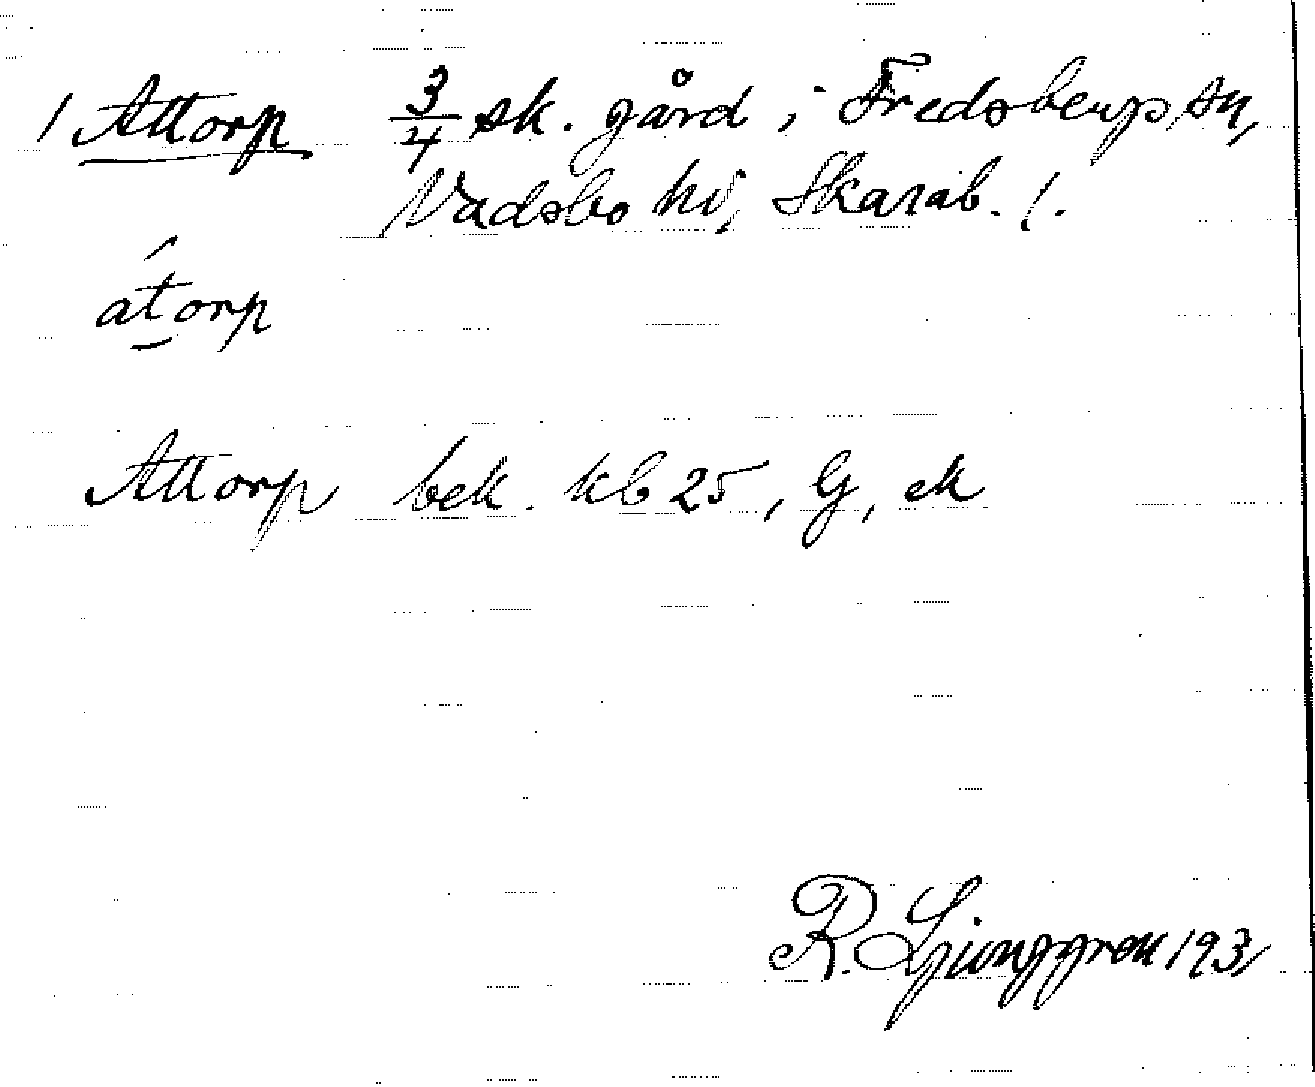 1 Attorp 3/4 sk. gård i Fredsbergs sn,
Vadsbo hd, Skarab. l.
átorp
Attorp bek. kb 25, G, ek
R. Ljunggren 1931